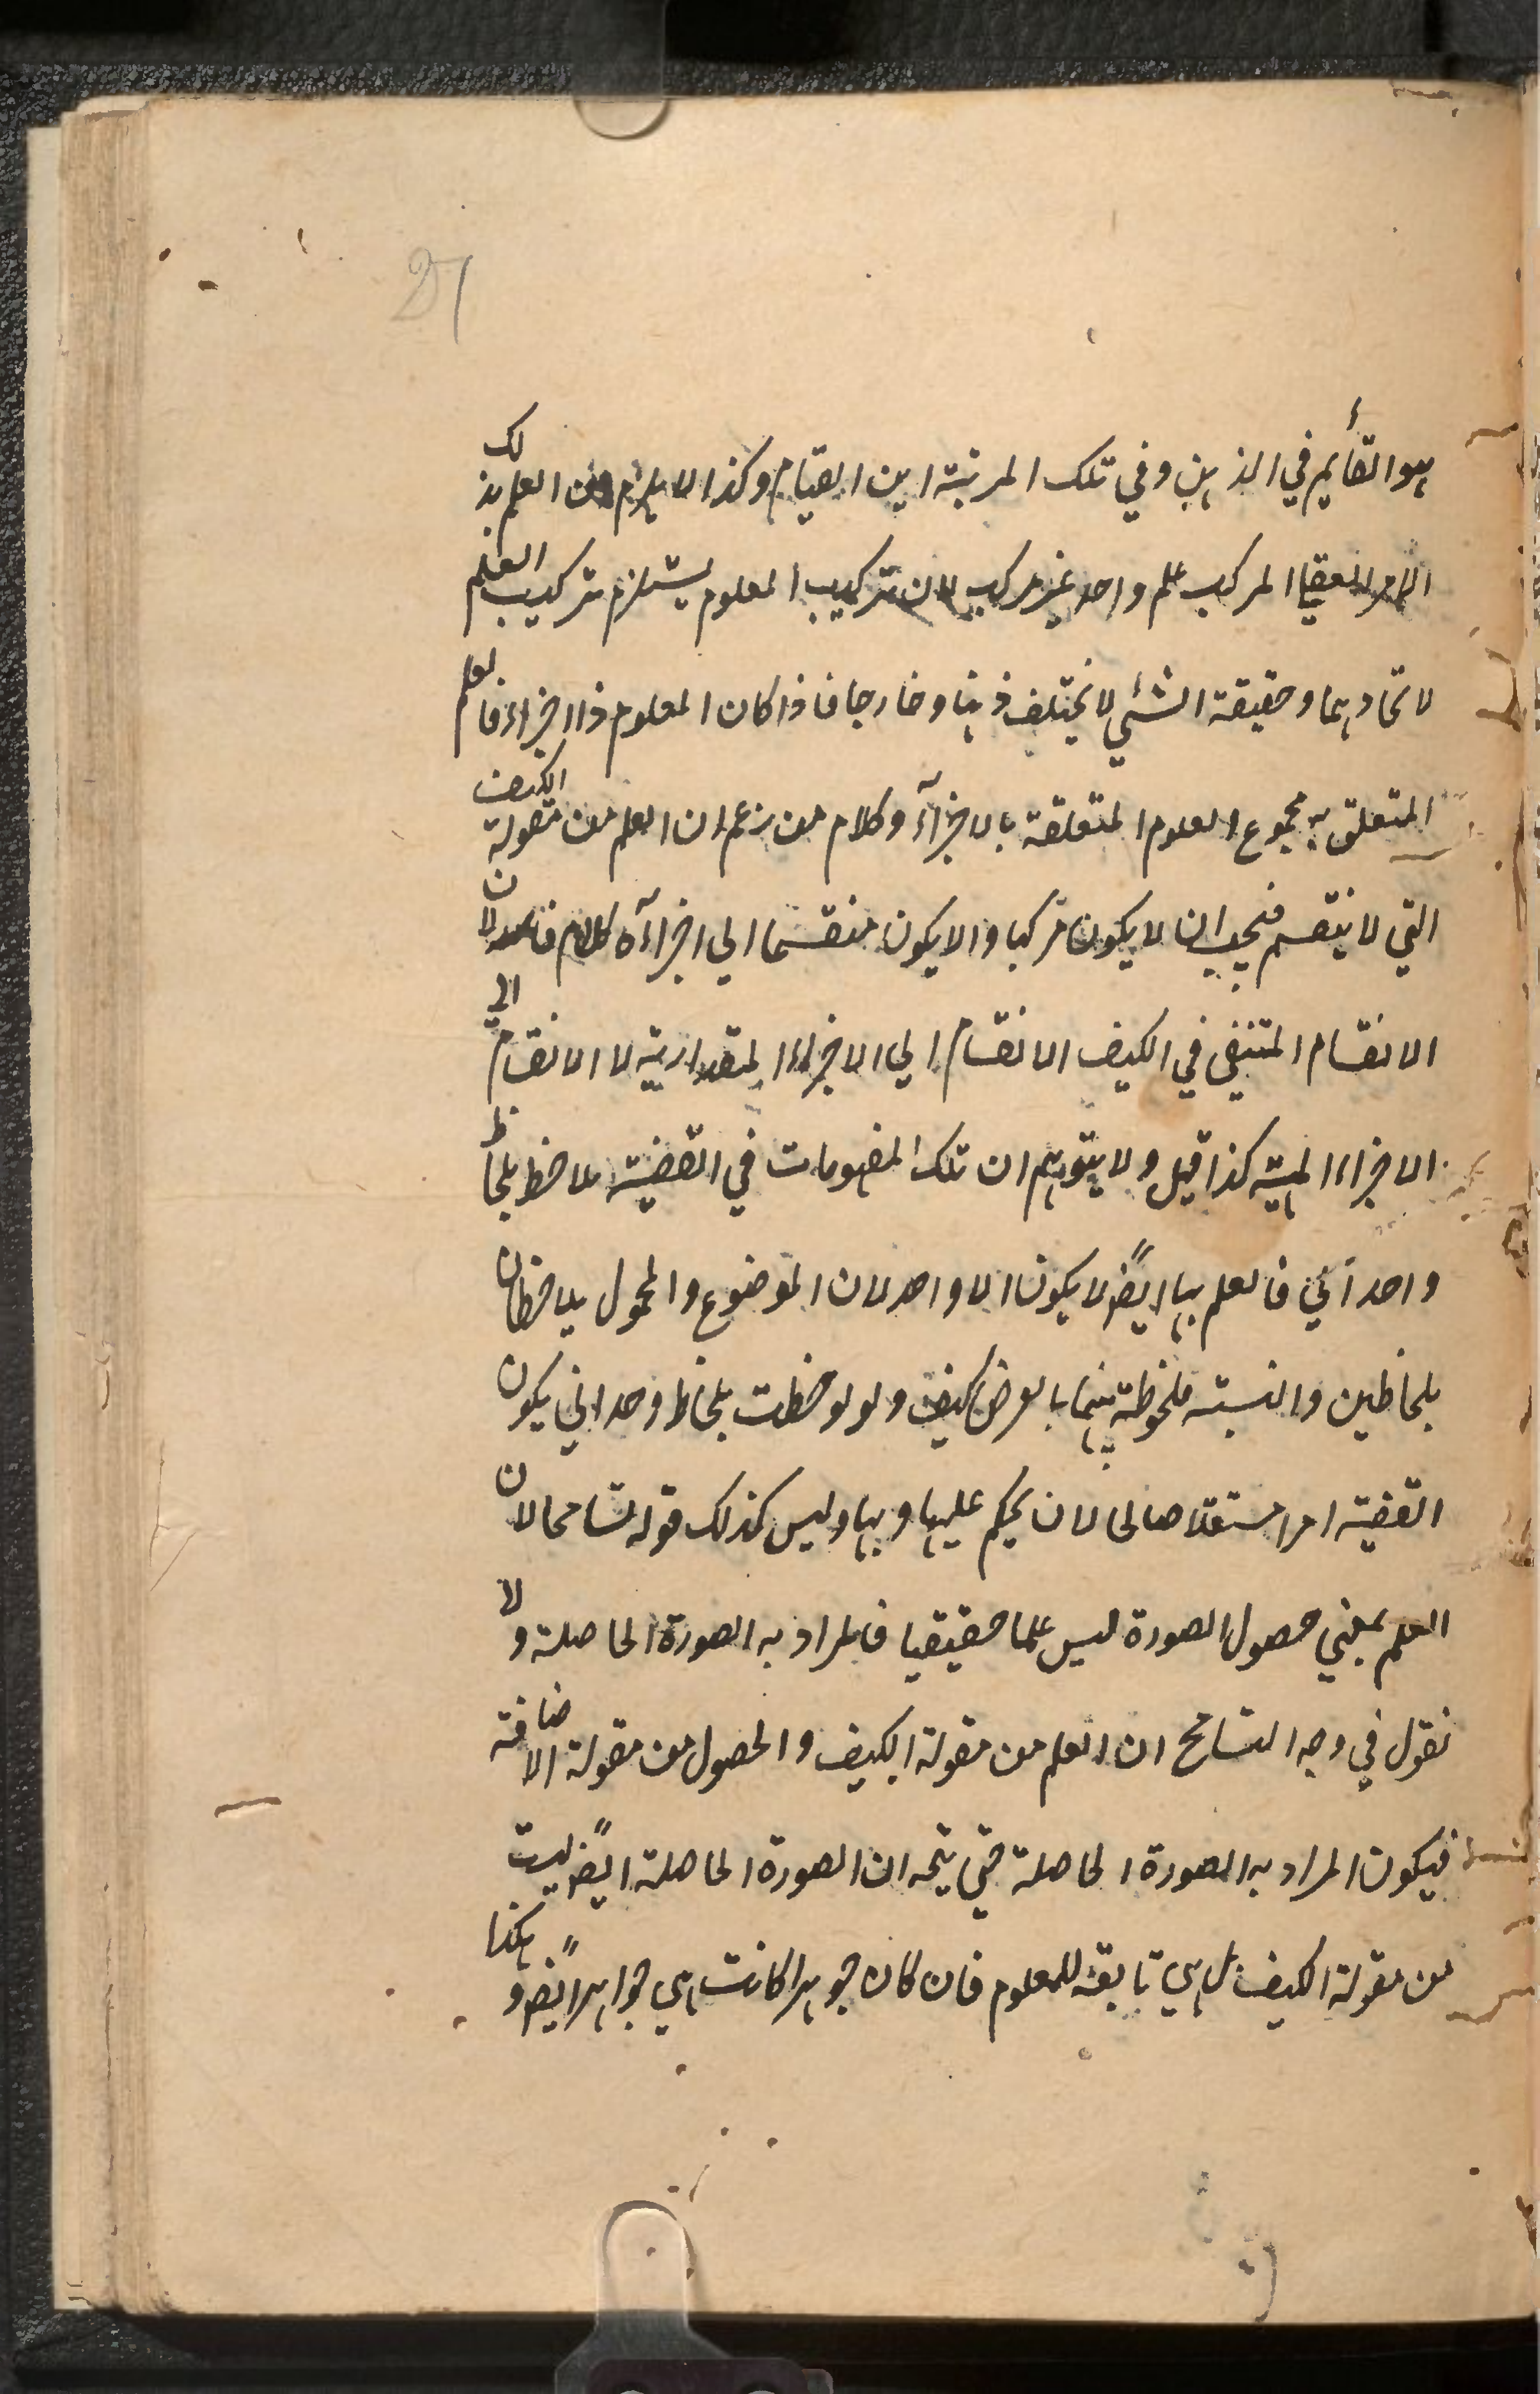 هو القأيم في الذهن وفي تلك المرتبة اين القيام وكذا لا يلزم من العلم بذلك
الامر العقلي المركب علم واحد غير مركب لان تركيب المعلوم يستلزم تركيب العلم
لاتحادهما وحقيقة الشئي لا يختلف ذهنا وخارجا فاذا كان المعلوم ذا اجزاء فالعلم
المتعلق به مجموع العلوم المتعلقة بالاجزآء وكلام من زعم ان العلم من مقولة الكيف
التي لا ينقسم فيجب ان لا يكون مركبا والا يكون منقسما الي اجزآءه كلام فاسد لان
الانقسام المنتفي في الكيف الانقسام الي الاجزاء المقدارية لا الانقسام الي
الاجزاء المهية كذا قيل ولا يتوهم ان تلك المفهومات في القضية ملاحظ بلحاظ
واحداني فالعلم بها ايضً لا يكون الا واحد لان الموضوع والمحمول يلاحظان
بلحاظين والنسبة ملحوظة بينهما بالعرض كيف ولو لوحظت بلحاظ وحداني يكون
القضية امرا مستقلا صالحا لان يحكم عليها وبها وليس كذلك قوله تسامحا لان
العلم بمعني حصول الصورة ليس علما حقيقيا فالمراد به الصورة الحاصلة ولا
نقول في وجه التسامح ان العلم من مقولة الكيف والحصول من مقولة الاضافة
فيكون المراد به الصورة الحاصلة حتي يتجه ان الصورة الحاصلة ايضً ليست
من مقولة الكيف بل هي تابعة للمعلوم فان كان جوهرا كانت هي جواهرا ايضً وهكذا